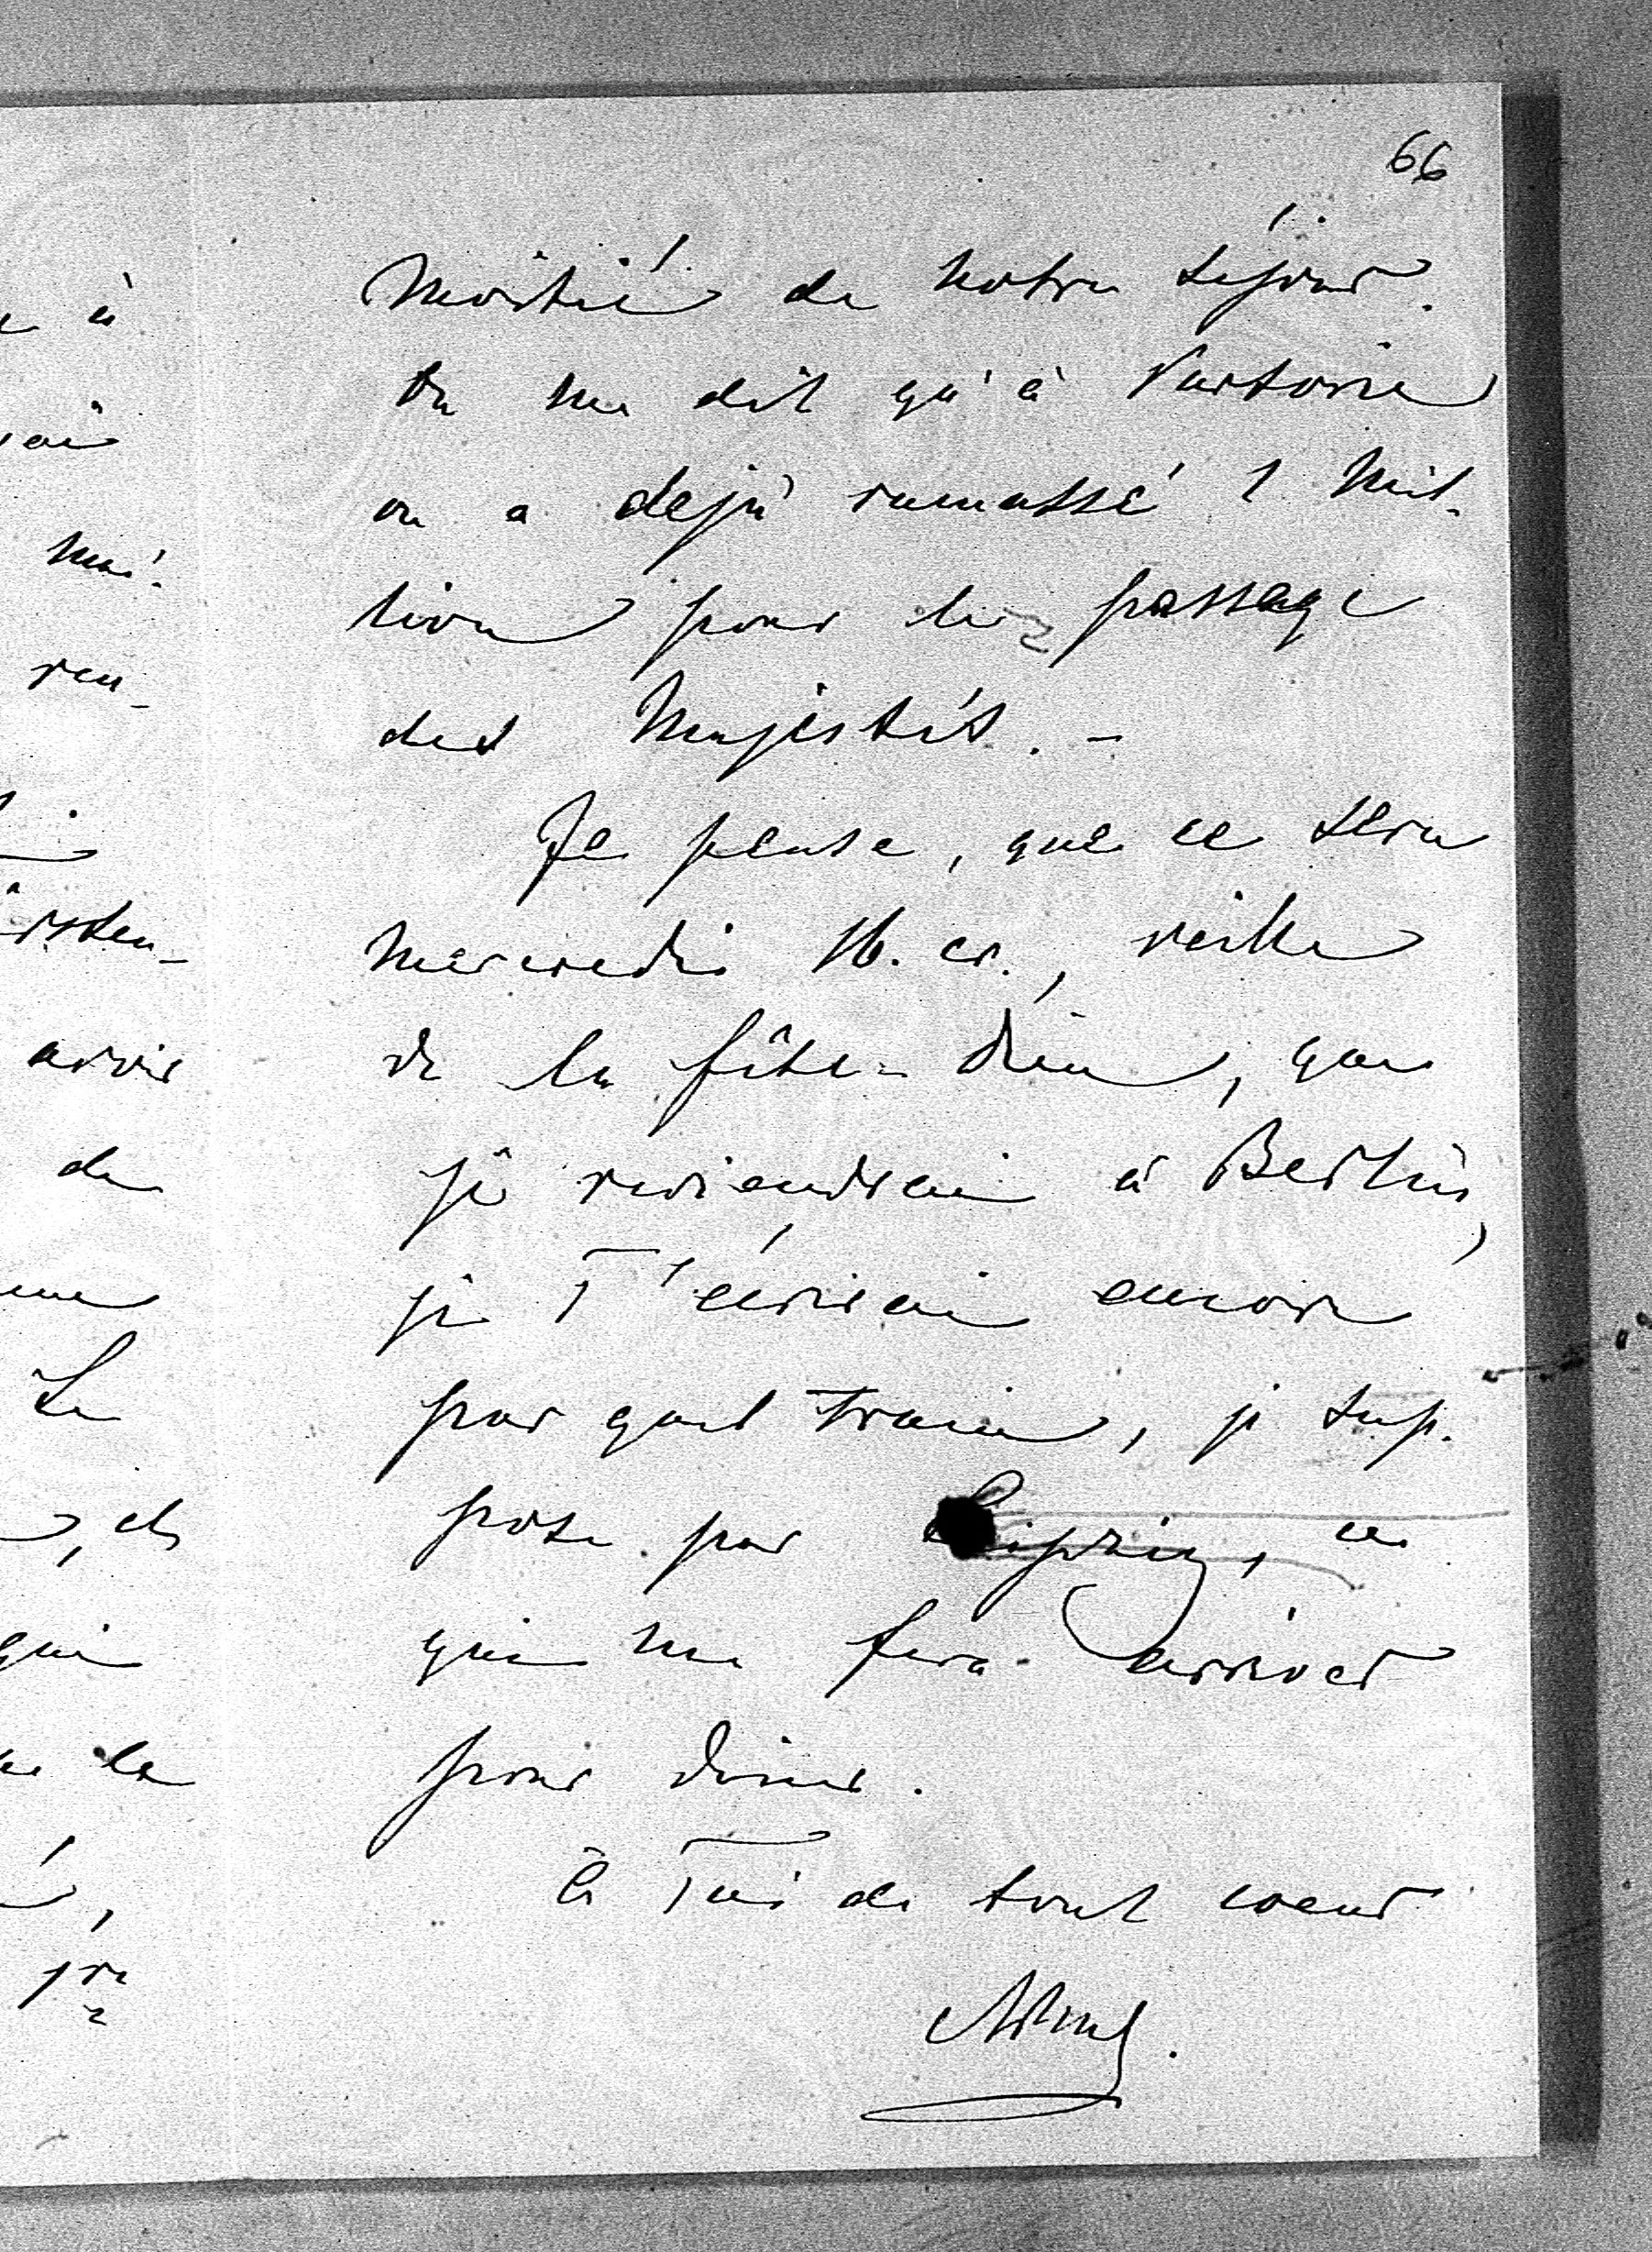 66
moitié de notre séjour.
On me dit qu'à Varsovie
on a dejà ramassé 1 mil-
lion pour le passage
des Majestés. -
Je pense, que ce sera
mercredi 16. cr., veille
de la fête-dieu, que
je reviendrai à Berlin,
je T'écrirai encore
par quel train, je sup-
pose par Leipzig, ce
qui me fera arriver
pour diner.
à Toi de tout coeur
à
mé-
ren-
arrive
de
Le
, et
qui
de la